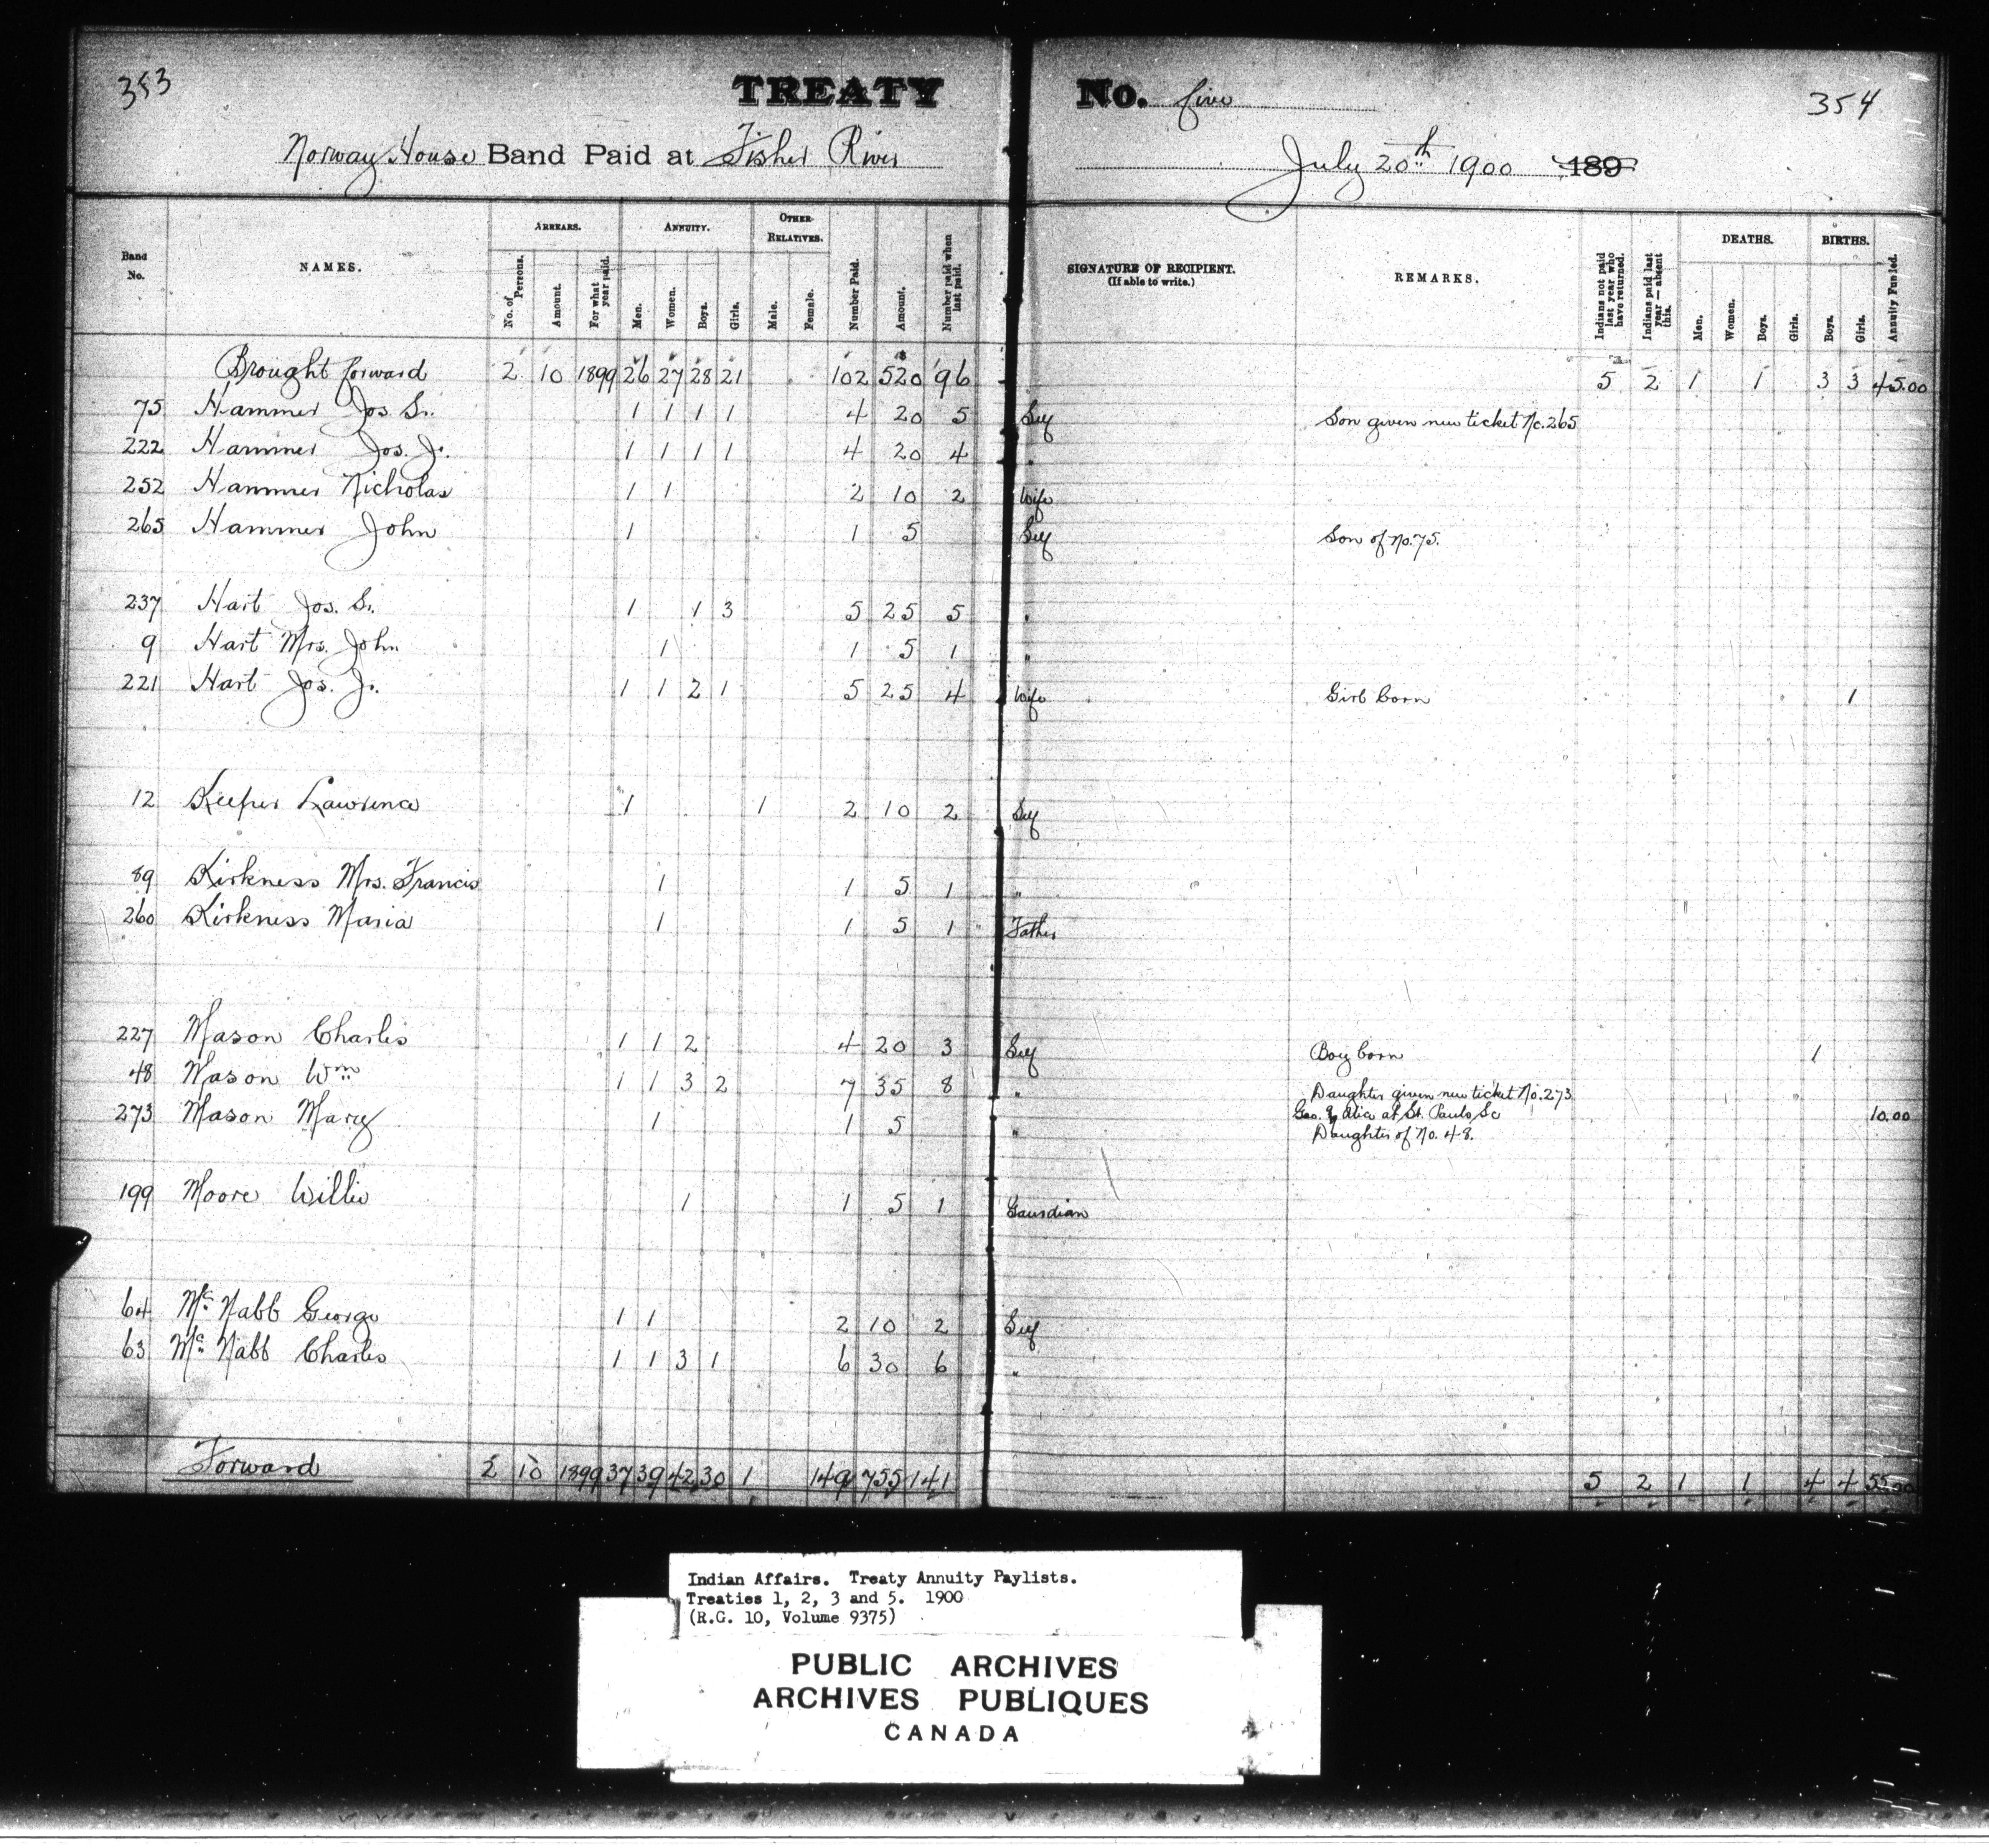 353
TREATY No. five
354
Norway House Band Paid at Fisher River
July 20th 1900 189
Band No. NAMES. ARREARS. No. of Persons. Amount. For what year paid. ANNUITY. Men. Women. Boys. Girls. OTHER RELATIVES. Male. Female. Number Paid. Amount. Number paid when last paid. SIGNATURE OF RECIPIENT. (If able to write.) REMARKS. Indians not paid last year who have returned. Indians paid last year — absent this. DEATHS. Men. Women. Boys. Girls. BIRTHS. Boys. Girls. Annuity Funded.
Brought forward 2 10 1899 26 27 28 21 102 $520 96 5 2 1 1 3 3 45.00
75 Hammer Jos. Sr. 1 1 1 1 4 20 5 Self Son given new ticket No. 265
222 Hammer Jos. Jr. 1 1 1 1 4 20 4 "
252 Hammer Nicholas 1 1 2 10 2 Wife
265 Hammer John 1 1 5 Self Son of No. 75.
237 Hart Jos. Sr. 1 1 3 5 25 5 "
9 Hart Mrs. John 1 1 5 1 "
221 Hart Jos. Jr. 1 1 2 1 5 25 4 Wife Girl born 1
12 Keeper Lawrence 1 1 2 10 2 Self
89 Kirkness Mrs. Francis 1 1 5 1 "
260 Kirkness Maria 1 1 5 1 Father
227 Mason Charles 1 1 2 4 20 3 Self Boy born 1
48 Mason Wm 1 1 3 2 7 35 8 " Daughter given new ticket No. 273
Geo. & Alice at St. Pauls Sc 10.00
273 Mason Mary 1 1 5 " Daughter of No. 48.
199 Moore Willie 1 1 5 1 Gaurdian
64 Mc Nabb George 1 1 2 10 2 Self
63 Mc Nabb Charles 1 1 3 1 6 30 6 "
Forward 2 10 1899 37 39 42 30 1 149 755 141 5 2 1 1 4 4 55.00
Indian Affairs. Treaty Annuity Paylists.
Treaties 1, 2, 3 and 5. 1900
(R.G. 10, Volume 9375)
PUBLIC ARCHIVES
ARCHIVES PUBLIQUES
CANADA